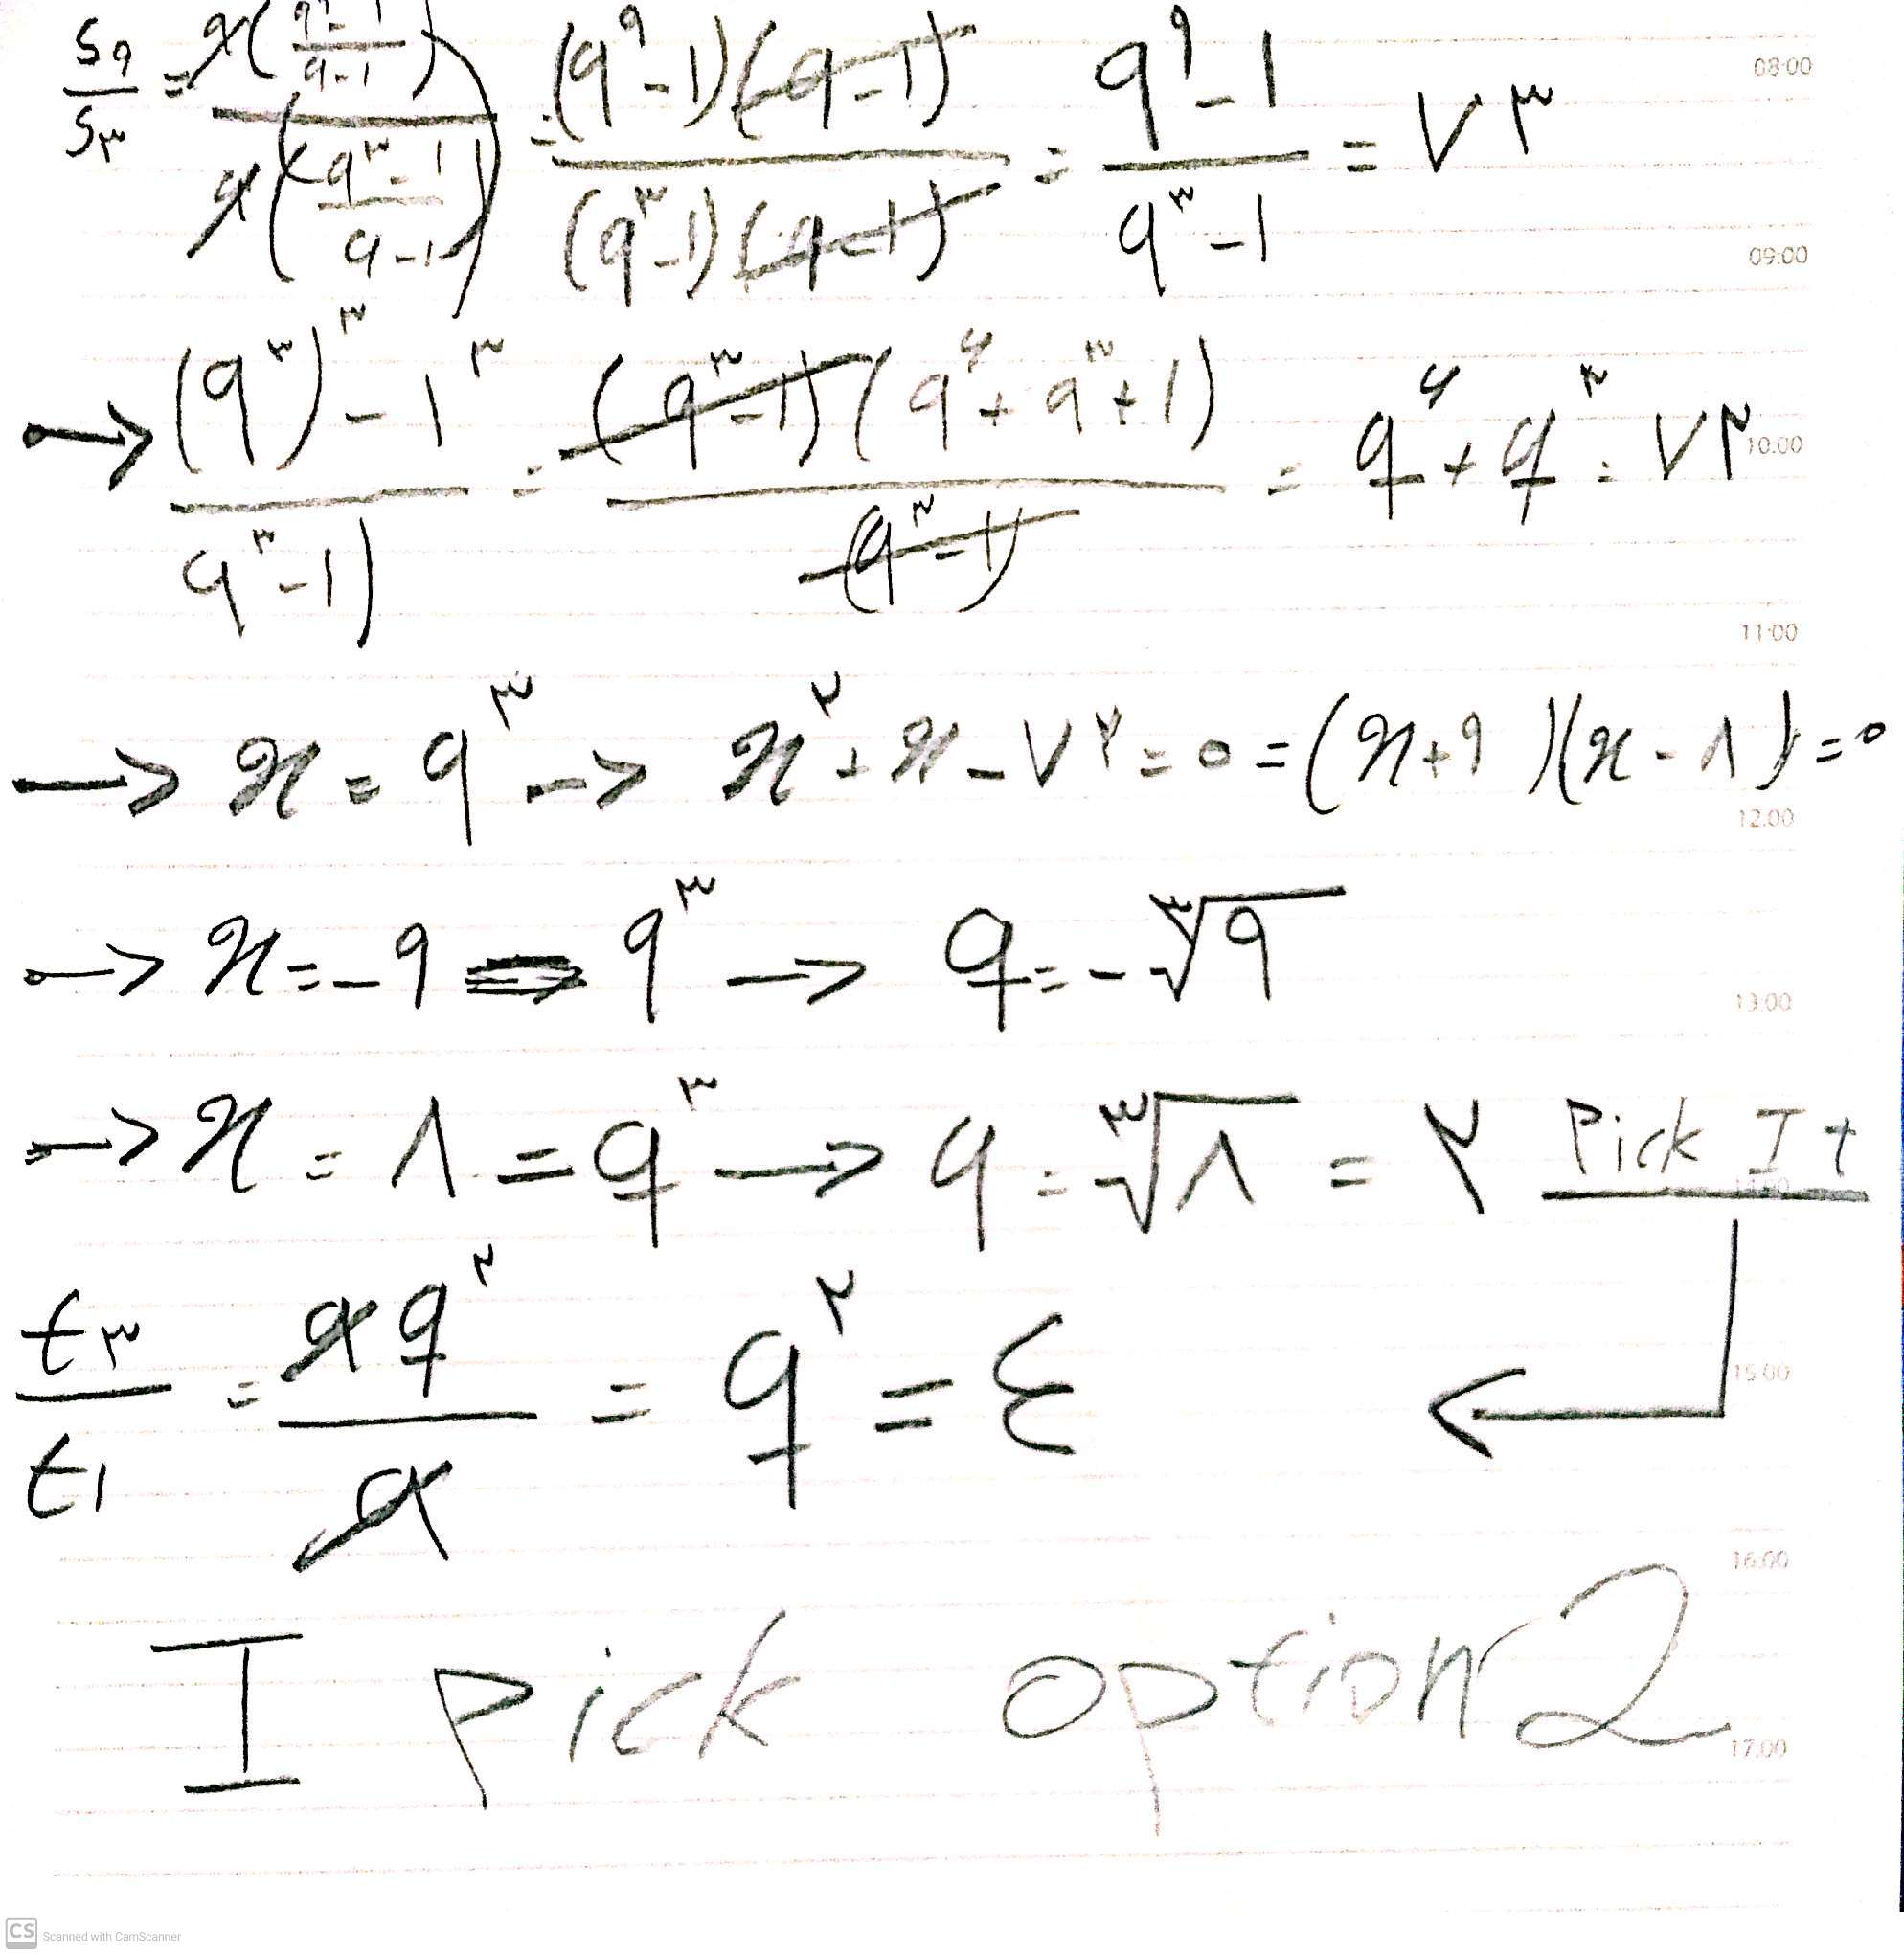 S۹/S۳ = a((q^۹-۱)/(q-۱)) / a((q^۳-۱)/(q-۱)) = (q^۹-۱)(q-۱) / (q^۳-۱)(q-۱) = (q^۹-۱)/(q^۳-۱) = ۷۳
08:00
09:00
→ ((q^۳)^۳ - ۱^۳)/(q^۳-۱) = (q^۳-۱)(q^۶+q^۳+۱)/(q^۳-۱) = q^۶+q^۳ = ۷۲
10:00
11:00
→ x = q^۳ → x^۲+x-۷۲=۰=(x+۹)(x-۸)=۰
12:00
→ x=-۹ = q^۳ → q=-∛۹
13:00
→ x = ۸ = q^۳ → q = ∛۸ = ۲ Pick It
t۳/t۱ = aq^۲/a = q^۲ = ٤
15:00
16:00
I pick option 2
17:00
CS Scanned with CamScanner